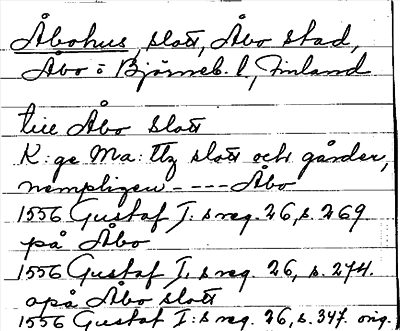 Åbohus, slott, Åbo stad,
Åbo o Björneb. l., Finland
till Åbo slott
K:ge Ma:ttz slott och gårder,
nempligen ---- Åbo
1556 Gustaf I:s reg. 26, s. 269.
på Åbo
1556 Gustaf I:s reg. 26, s. 274.
opå Åbo slott
1556 Gustaf I:s reg. 26, s. 347. orig.